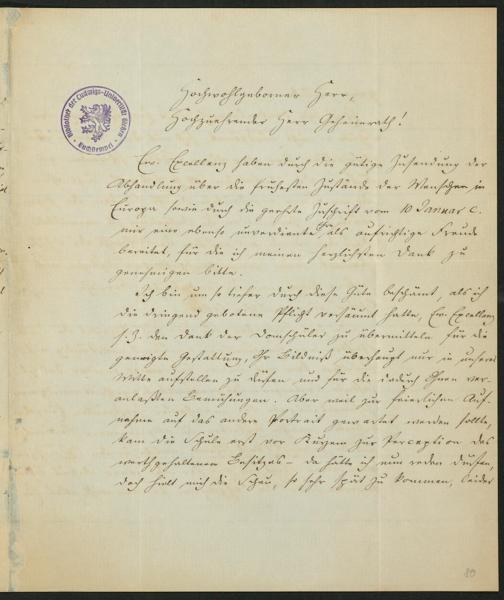 Bibliothek der Ludwigs-Universität Gießen
Hochwohlgeborner Herr,
Hochzuehrender Herr Geheimrath!
Ew. Excellenz haben durch die gütige Zusendung der
Abhandlung über die frühesten Zustände der Menschen in
Europa sowie durch die geehrte Zuschrift vom 10 Januar c.
mir eine ebenso unverdiente als aufrichtige Freude
bereitet, für die ich meinen herzlichsten Dank zu
genehmigen bitte.
Ich bin um so tiefer durch diese Güte beschämt, als ich
die dringend gebotene Pflicht versäumt hatte, Ew. Excellenz
s. Z. den Dank der Domschüler zu übermitteln für die
geneigte Gestattung, Ihr Bildniß überhaupt nur in unserer
Mitte aufstellen zu dürfen und für die dadurch Ihnen ver-
anlaßten Bemühungen. Aber weil zur feierlichen Auf-
nahme auf das andere Portrait gewartet werden sollte,
kam die Schule erst vor Kurzem zur Perception des
werthgehaltenen Besitzes – da hätte ich nun reden dürfen,
doch hielt mich die Scheu, so sehr spät zu kommen, leider
80